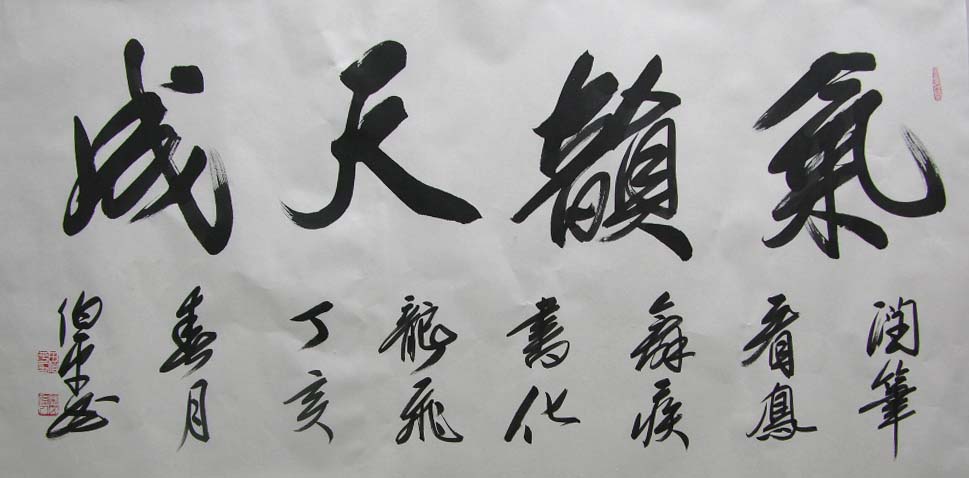 氣韻天成
潤筆
看鳳
舞疾
書化
龍飛
丁亥
春月
伯平书